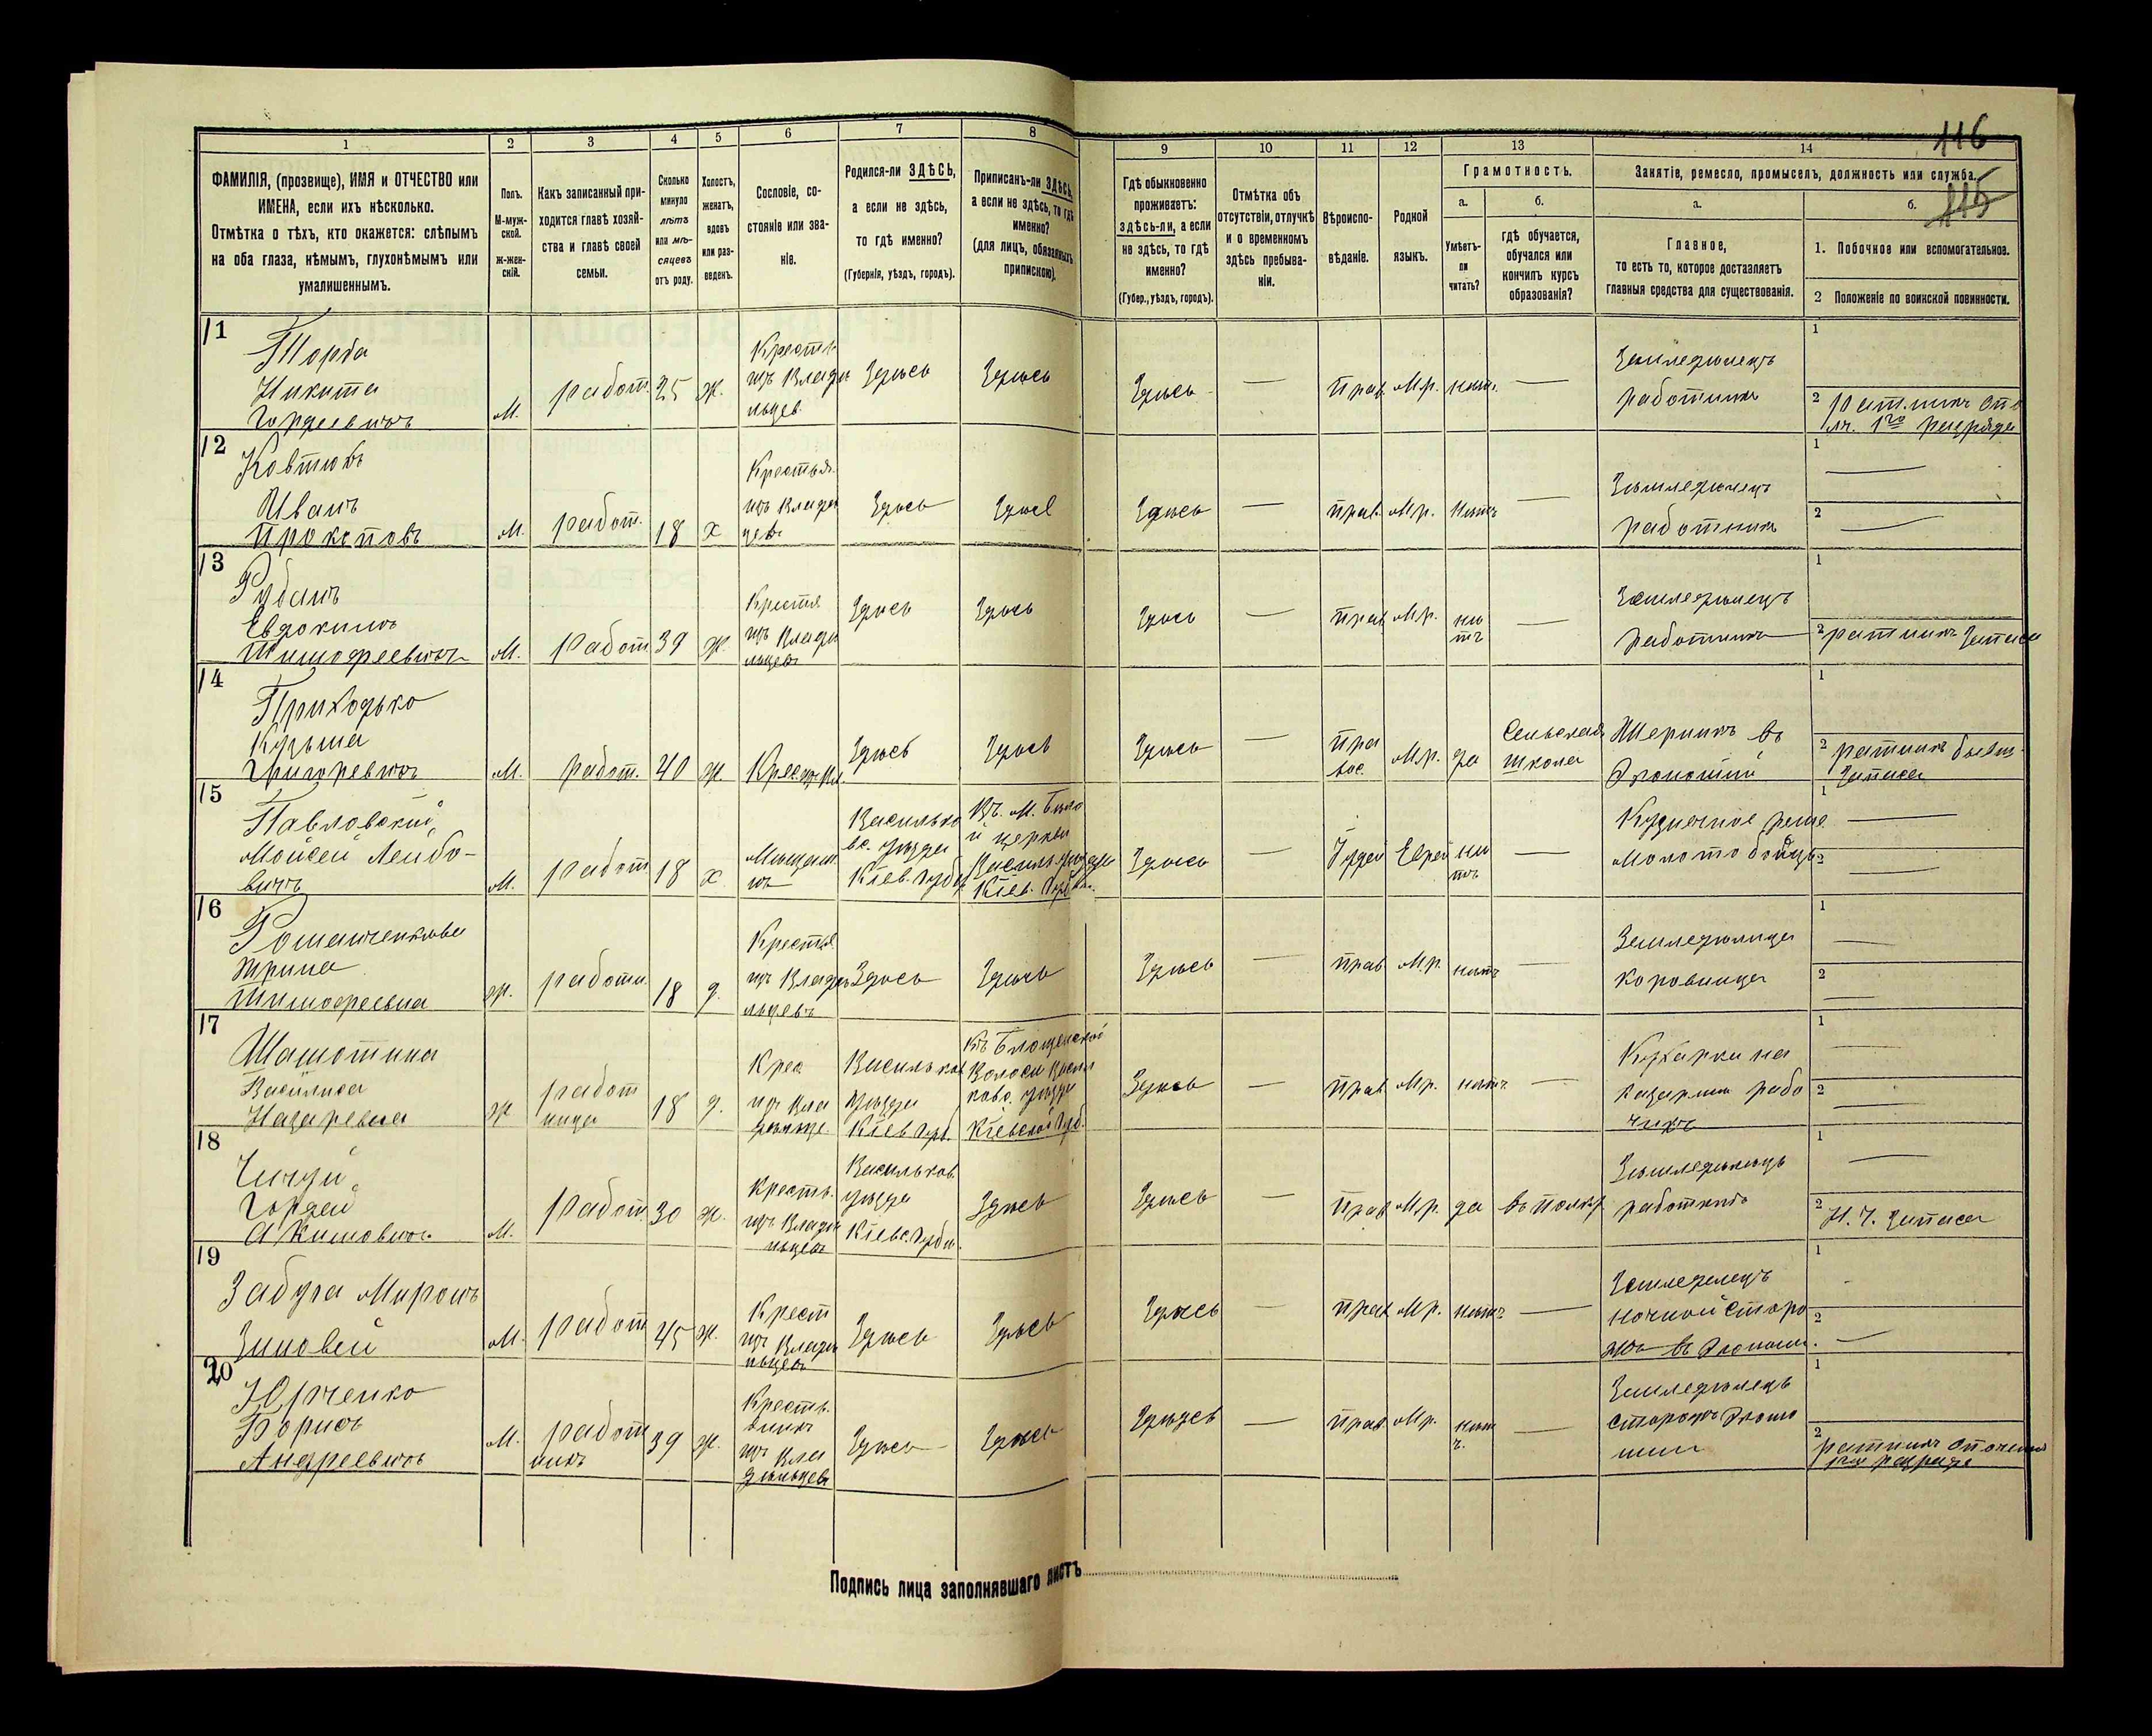 116
115
1
2
3
4
5
6
7
8
9
10
11
12
13
14
ФАМИЛІЯ, (прозвище), ИМЯ и ОТЧЕСТВО или
ИМЕНА, если ихъ нѣсколько.
Отмѣтка о тѣхъ, кто окажется: слѣпымъ
на оба глаза, нѣмымъ, глухонѣмымъ или
умалишеннымъ.
Полъ.
М-муж-
ской.
Ж-жен-
скій.
Какъ записанный при-
ходится главѣ хозяй-
ства и главѣ своей
семьи.
Сколько
минуло
лѣтъ
или мѣ-
сяцевъ
отъ роду.
Холостъ,
женатъ,
вдовъ
или раз-
веденъ.
Сословіе, со-
стояніе или зва-
ніе.
Родился-ли ЗДѢСЬ,
а если не здѣсь,
то гдѣ именно?
(Губернія, уѣздъ, городъ).
Приписанъ-ли ЗДѢСЬ,
а если не здѣсь, то гдѣ
именно?
(для лицъ, обязанныхъ
припискою).
Гдѣ обыкновенно
проживаетъ:
здѣсь-ли, а если
не здѣсь, то гдѣ
именно?
(Губер., уѣздъ, городъ).
Отмѣтка объ
отсутствіи, отлучкѣ
и о временномъ
здѣсь пребыва-
ніи.
Вѣроиспо-
вѣданіе.
Родной
языкъ.
Грамотность.
а.
Умѣетъ-
ли
читать?
б.
гдѣ обучается,
обучался или
кончилъ курсъ
образованія?
Занятіе, ремесло, промыселъ, должность или служба.
а.
Главное,
то есть то, которое доставляетъ
главныя средства для существованія.
б.
1. Побочное или вспомогательное.
2 Положеніе по воинской повинности.
11
Торба
Никита
Гордеевичъ
М. работ. 25 ж.
Крестья
изъ Влади
льцев
Здѣсь Здѣсь Здѣсь — Прав. Мр. нѣтъ —
Земледѣлецъ
работникъ
1
2 ратникъ опо
лч. 1го разряда
12
Ковтюхъ
Иванъ
Прокоповъ
М. работ. 18 х
Крестья.
изъ Влади
цевъ
Здѣсь Здѣсь Здѣсь — прав. Мр. нѣтъ —
Земледѣлецъ
работникъ
1 —
2 —
13
Рубанъ
Евдокимъ
Тимофеевичъ
М. Работ 39 ж.
Крестья
изъ Влади
льцевъ
Здѣсь Здѣсь Здѣсь — Прав Мр. нѣ
тъ —
Земледѣлецъ
работникъ
1
2 ратникъ Запаса
14
Приходько
Кузьма
Григоревичъ
М. работ. 40 ж.
Здѣсь Здѣсь Здѣсь — Пра
вос. Мр. да
Сельская
школа
въ
Экономіи
1
2 ратникъ
Запаса
15
Павловскій
Мойсей Лейбо-
вичъ
М. работ 18 х.
Мѣщан.
нъ
Василько
вс. уѣзда
Кіев. губ.
Къ М. Бѣло
й церкви
Василь. уѣзда
Кіев. губ.
Здѣсь — Іудей Еврей нѣ
тъ —
Молотобоецъ
1 —
2 —
16
Романченкова
Ирина
Тимофеевна
ж. работн. 18 д.
Крестья
изъ Влад
льцевъ
Здѣсь Здѣсь Здѣсь — Прав Мр. нѣтъ —
Земледѣлица
коровница
1 —
2 —
17
Шамотина
Василиса
Назаревна
ж работ
ница 18 д.
Крес
изъ Вла
дѣльце.
Васильков
уѣзда
Кіев. губ.
Волости Васил
ковс. уѣзда
Кіевской губ.
Здѣсь — Прав Мр. нѣтъ —
Кухарка на
казармѣ рабо
чихъ
1 —
2 —
18
Гордей
Акимовичъ
М. Работ. 30 ж.
Крестья.
изъ Влади
льцевъ
Васильков
уѣзда
Кіевс. губ.
Здѣсь Здѣсь — Прав Мр. да въ полку
Земледѣлецъ
работникъ
1 —
2 Н. Ч. Запаса
19
Забуга Миронъ
Зиновей
М. работ 45 ж.
Крест
изъ Влади
льцевъ
Здѣсь Здѣсь Здѣсь — прав Мр. нѣтъ —
Земледелецъ
ночной сторо
жъ въ Эконом.
1 -
2 —
20
Юрченко
Борисъ
Андреевичъ
М. работ
никъ 39 ж.
Кресть.
янинъ
изъ Вла
дѣльцевъ
Здѣсь Здѣсь Здѣсь — прав Мр. нѣт
ъ. —
Земледѣлецъ
сторожъ Эконо
міи
1
2 ратникъ ополчен
1го разряда
Подпись лица заполнявшаго листъ